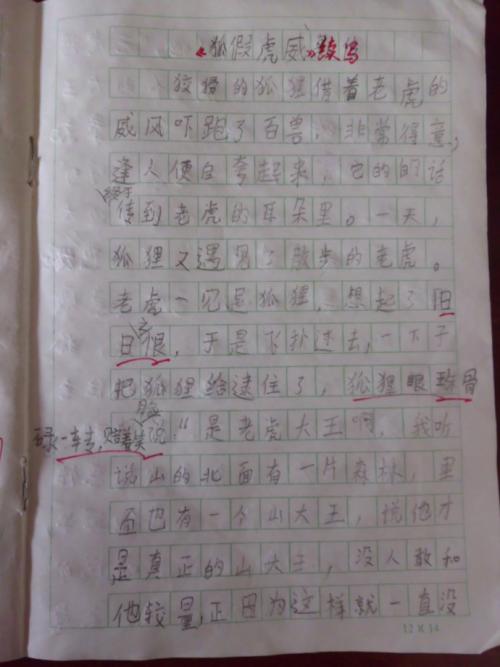 《狐假虎威》续写
狡猾的狐狸借着老虎的
威风吓跑了百兽，非常得意，
逢人便自夸起来，它的的话
终于
传到老虎的耳朵里。一天，
狐狸又遇见了散步的老虎。
老虎一见是狐狸，想起了旧
日恨，于是飞扑过去，一下子
把狐狸给逮住了，狐狸眼珠骨
碌一转，陪着笑脸说：“是老虎大王啊，我听
说山的北面有一片森林，里
面也有一个山大王，说他才
是真正的山大王，没人敢和
他较量，正因为这样就一直没
12×14